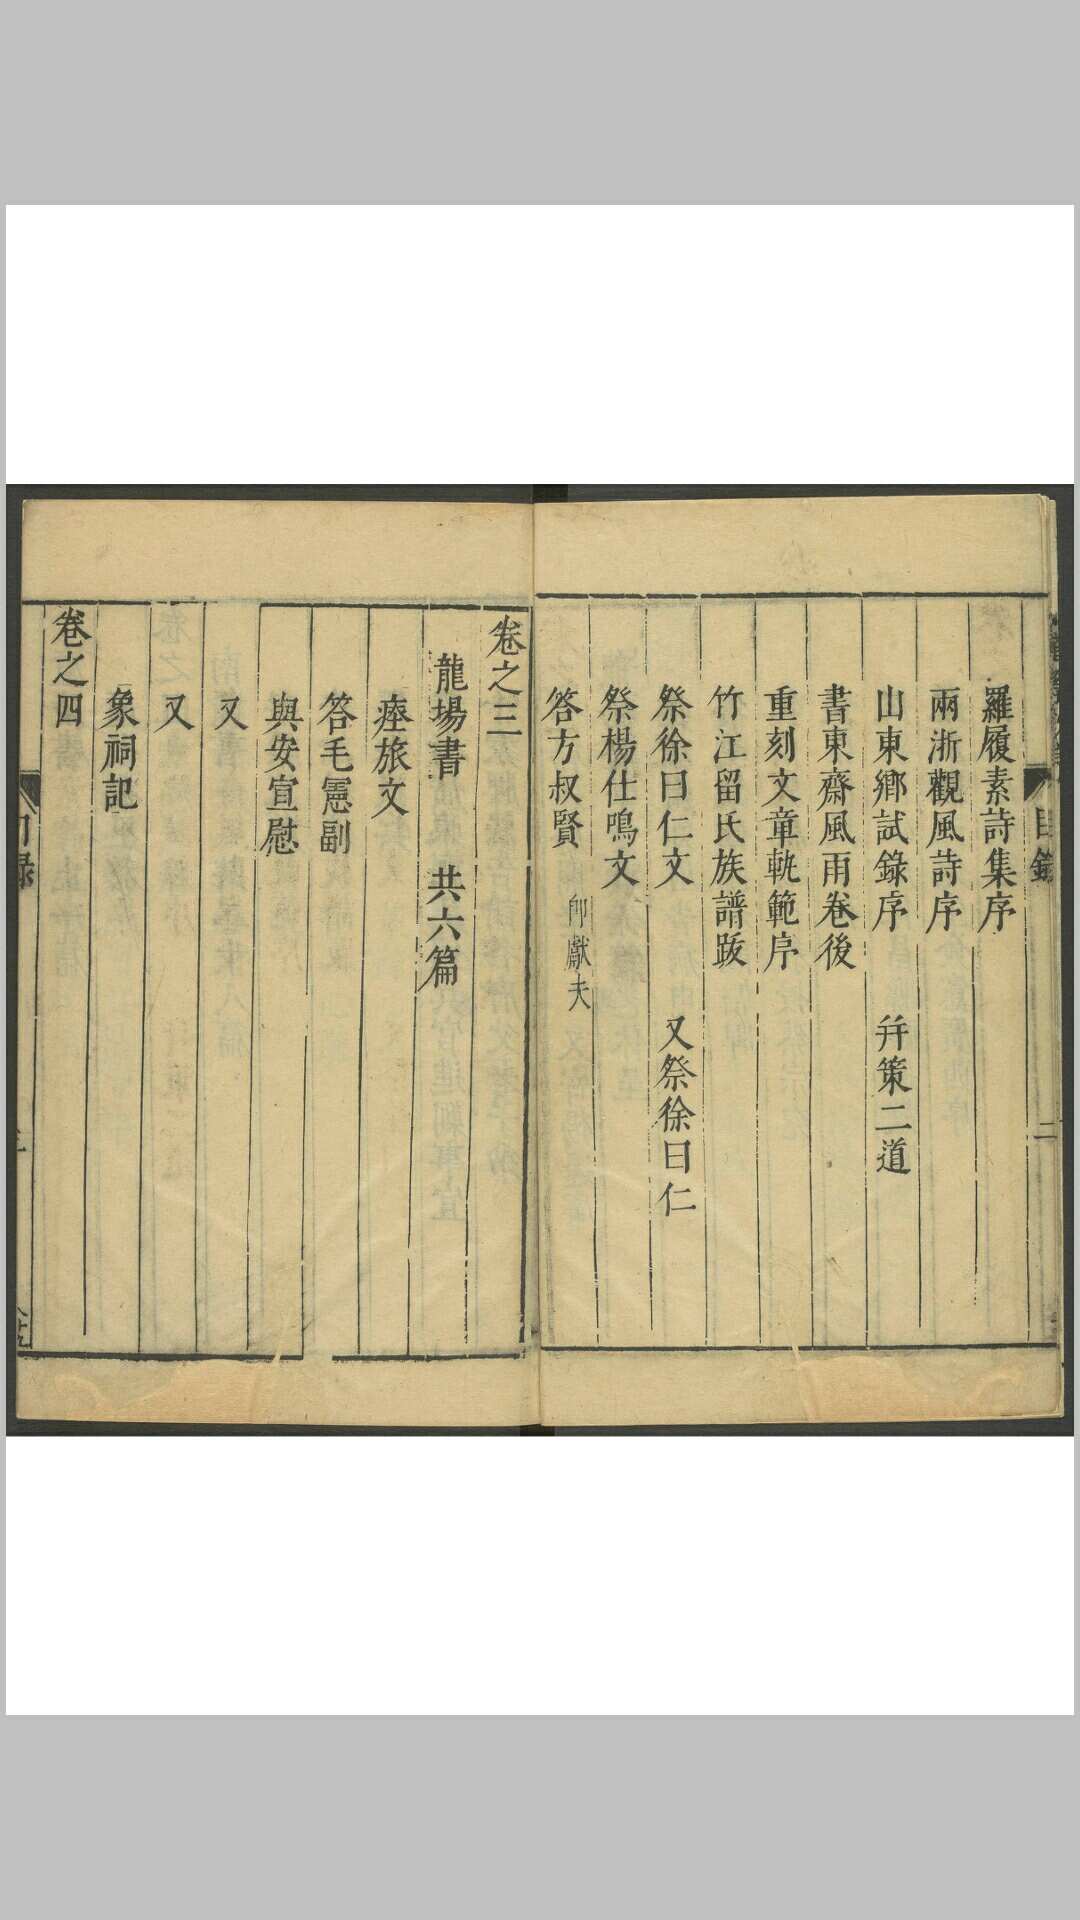 目錄
二
羅履素詩集序
兩浙觀風詩序
山東鄉試錄序 并策二道
書東齋風雨卷後
重刻文章軌範序
竹江留氏族譜跋
祭徐曰仁文 又祭徐曰仁
祭楊仕鳴文
答方叔賢 即獻夫
卷之三
龍場書 共六篇
瘞旅文
答毛憲副
與安宣慰
又
又
象祠記
卷之四